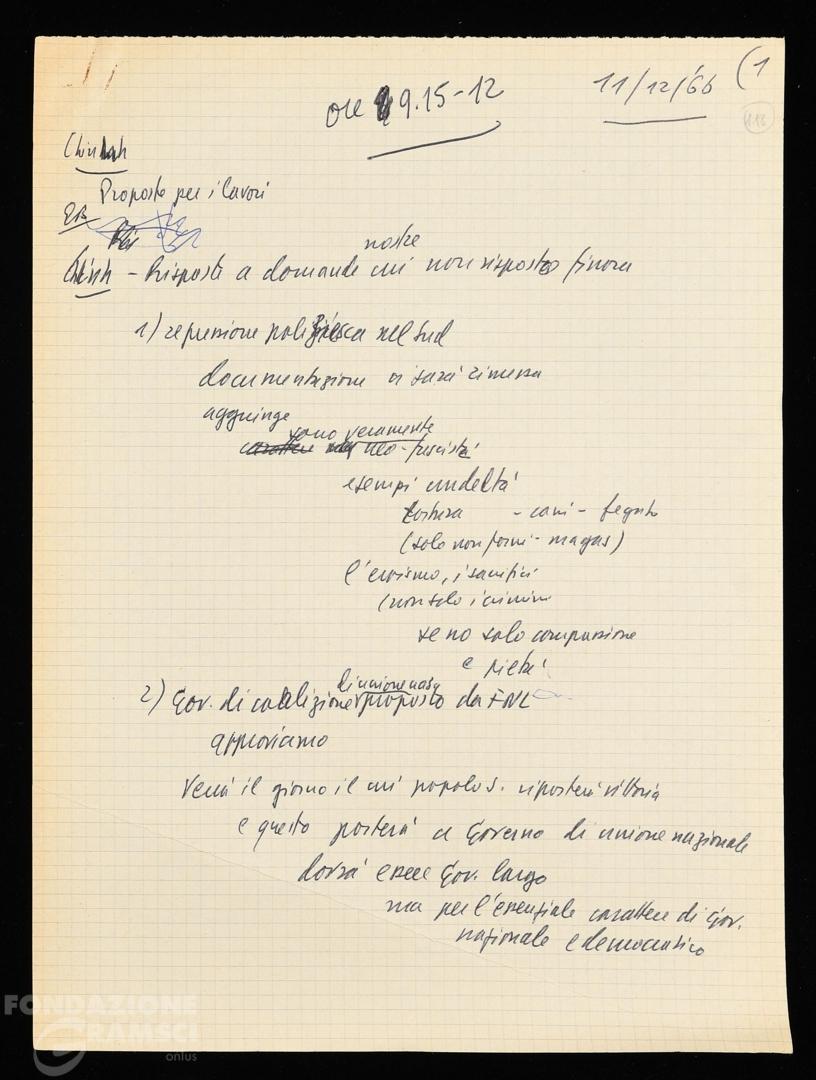 ore 9.15-12
11/12/66 (1
118
Chinh
Proposte per i lavori
EB
nostre
Chinh - Risposte a domande cui non risposto finora
1) repressione poliziesca nel Sud
documentazione ci sarà rimessa
aggiunge
sono veramente
neo-fascisti
esempi crudeltà
tortura - cani - fegato
(solo non forni - magas)
l'eroismo, i sacrifici
(non solo i crimini
se no solo compassione
e pietà
di unione naz.
2) Gov. di coalizione proposto da FNL
approviamo
Verrà il giorno il cui popolo S. riporterà vittoria
e questo porterà a Governo di unione nazionale
dovrà essere Gov. largo
ma per l'essenziale carattere di Gov.
nazionale e democratico
FONDAZIONE
GRAMSCI
onlus